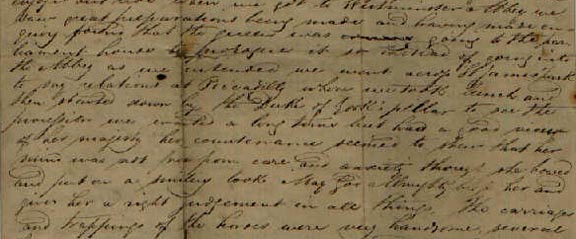 when we got to Westminster Abbey we
saw great preparations being made and having made en
quiry found that the queen was going to the par
liament house to prorogue it so instead of going into
the Abbey as we intended we went across St James park
to my relations at Piccadilly where we took lunch and
then started down by the Duke of York's pillar to see the
procession we waited a long time but had a good view
of her majesty her countenance seemed to shew that her
mind was not free from care and anxiety though she bowed
and put on a smiling look May God almighty bless her and
give her a right judgement in all things. The carriages
and trappings of the horses were very handsome, several